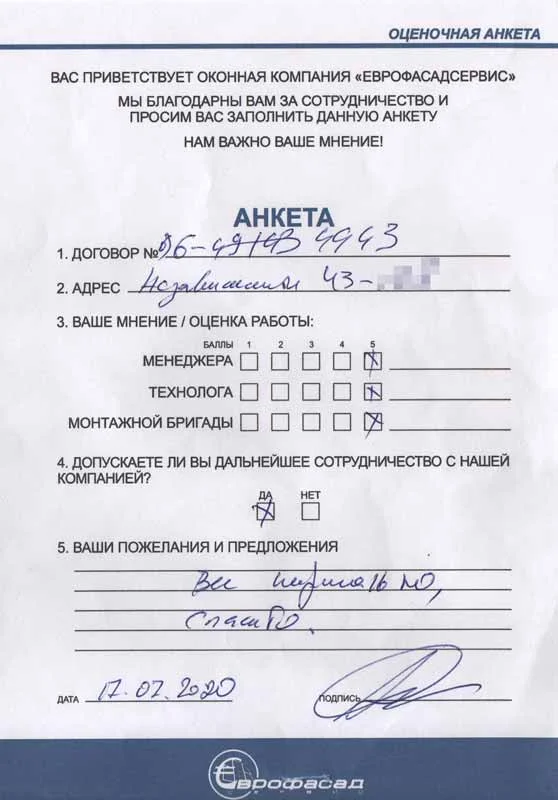 ОЦЕНОЧНАЯ АНКЕТА
ВАС ПРИВЕТСТВУЕТ ОКОННАЯ КОМПАНИЯ «ЕВРОФАСАДСЕРВИС»
МЫ БЛАГОДАРНЫ ВАМ ЗА СОТРУДНИЧЕСТВО И
ПРОСИМ ВАС ЗАПОЛНИТЬ ДАННУЮ АНКЕТУ
НАМ ВАЖНО ВАШЕ МНЕНИЕ!
АНКЕТА
1. ДОГОВОР № 4943
2. АДРЕС 43-
3. ВАШЕ МНЕНИЕ / ОЦЕНКА РАБОТЫ:
БАЛЛЫ 1 2 3 4 5
МЕНЕДЖЕРА
ТЕХНОЛОГА
МОНТАЖНОЙ БРИГАДЫ
4. ДОПУСКАЕТЕ ЛИ ВЫ ДАЛЬНЕЙШЕЕ СОТРУДНИЧЕСТВО С НАШЕЙ
КОМПАНИЕЙ?
ДА НЕТ
5. ВАШИ ПОЖЕЛАНИЯ И ПРЕДЛОЖЕНИЯ
Все нормально,
Спасибо.
ДАТА 17.07.2020 ПОДПИСЬ
Еврофасад